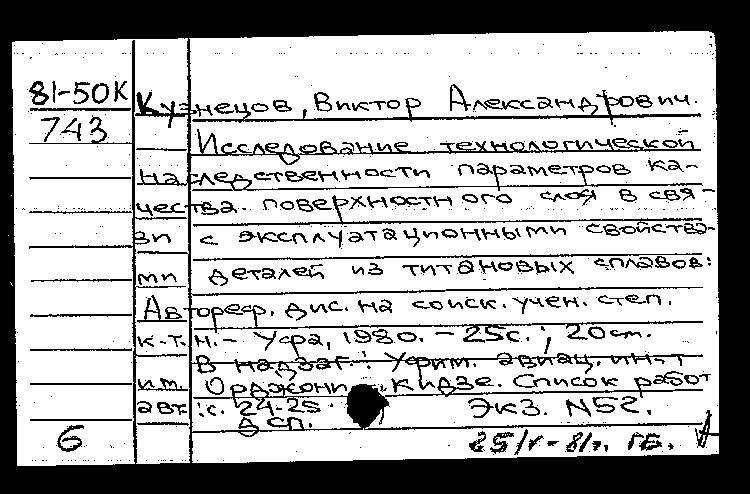 81-50К
743
Кузнецов, Виктор Александрович.
Исследование технологической
наследственности параметров ка-
чества поверхностного слоя в свя-
зи с эксплуатационными свойства-
ми деталей из титановых сплавов:
Автореф. дис. на соиск. учен. степ.
к.т.н. - Уфа, 1980. - 25с.; 20см.
В надзаг.: Уфим. авиац. ин-т
им. Орджоникидзе. Список работ
авт.: с. 24-25. Экз. N52.
ДСП.
6
25/V-81г. ГБ.